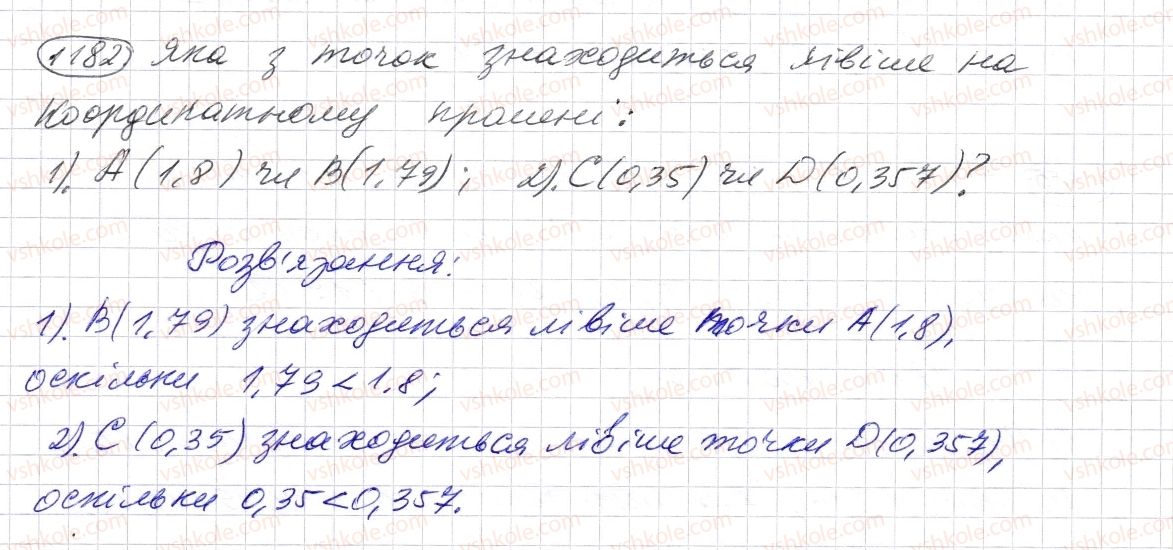 1182 Яка з точок знаходиться лівіше на
координатному промені:
1). A(1,8) чи B(1,79); 2). C(0,35) чи D(0,357)?
Розв'язання:
1). B(1,79) знаходиться лівіше точки A(1,8),
оскільки 1,79 < 1,8;
2). C(0,35) знаходиться лівіше точки D(0,357),
оскільки 0,35 < 0,357.